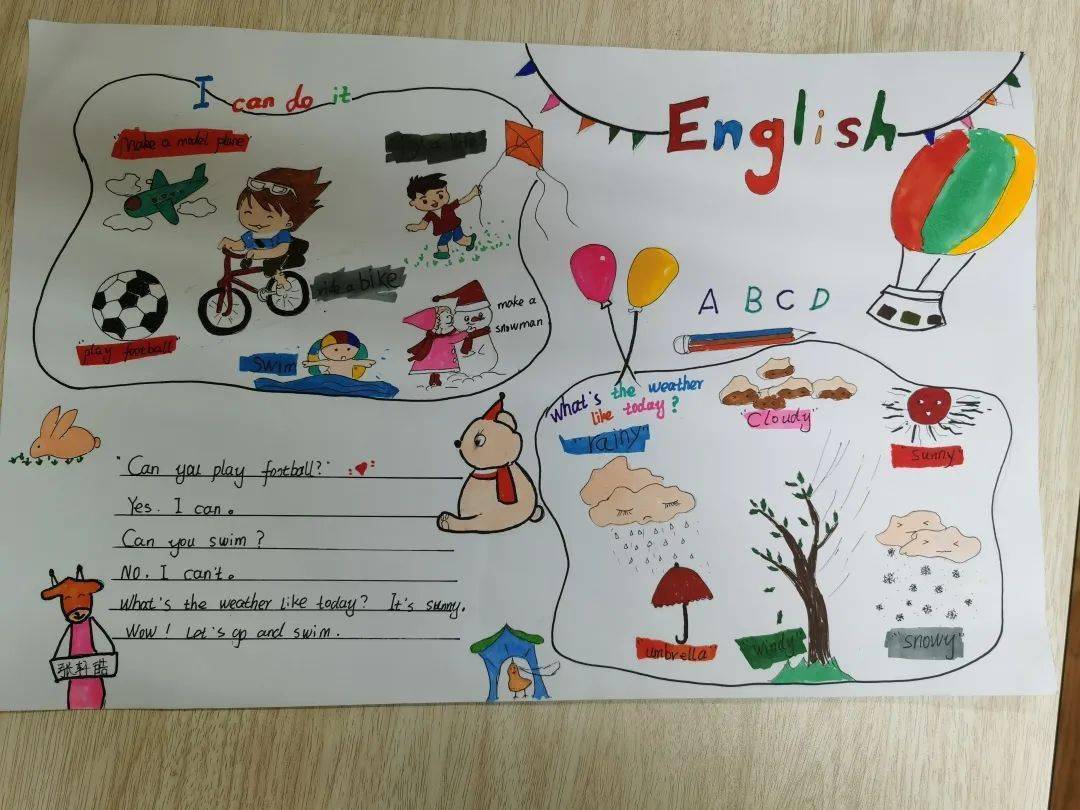 English
I can do it
"Make a model plane"
fly a kite
ride a bike
make a
snowman
"play football"
swim
A B C D
What's the weather
like today?
"rainy"
"Cloudy"
"sunny"
umbrella
windy
"snowy"
"Can you play football?"
Yes. I can。
Can you swim?
No. I can't。
What's the weather like today? It's sunny.
Wow! Let's go and swim.
张轩皓